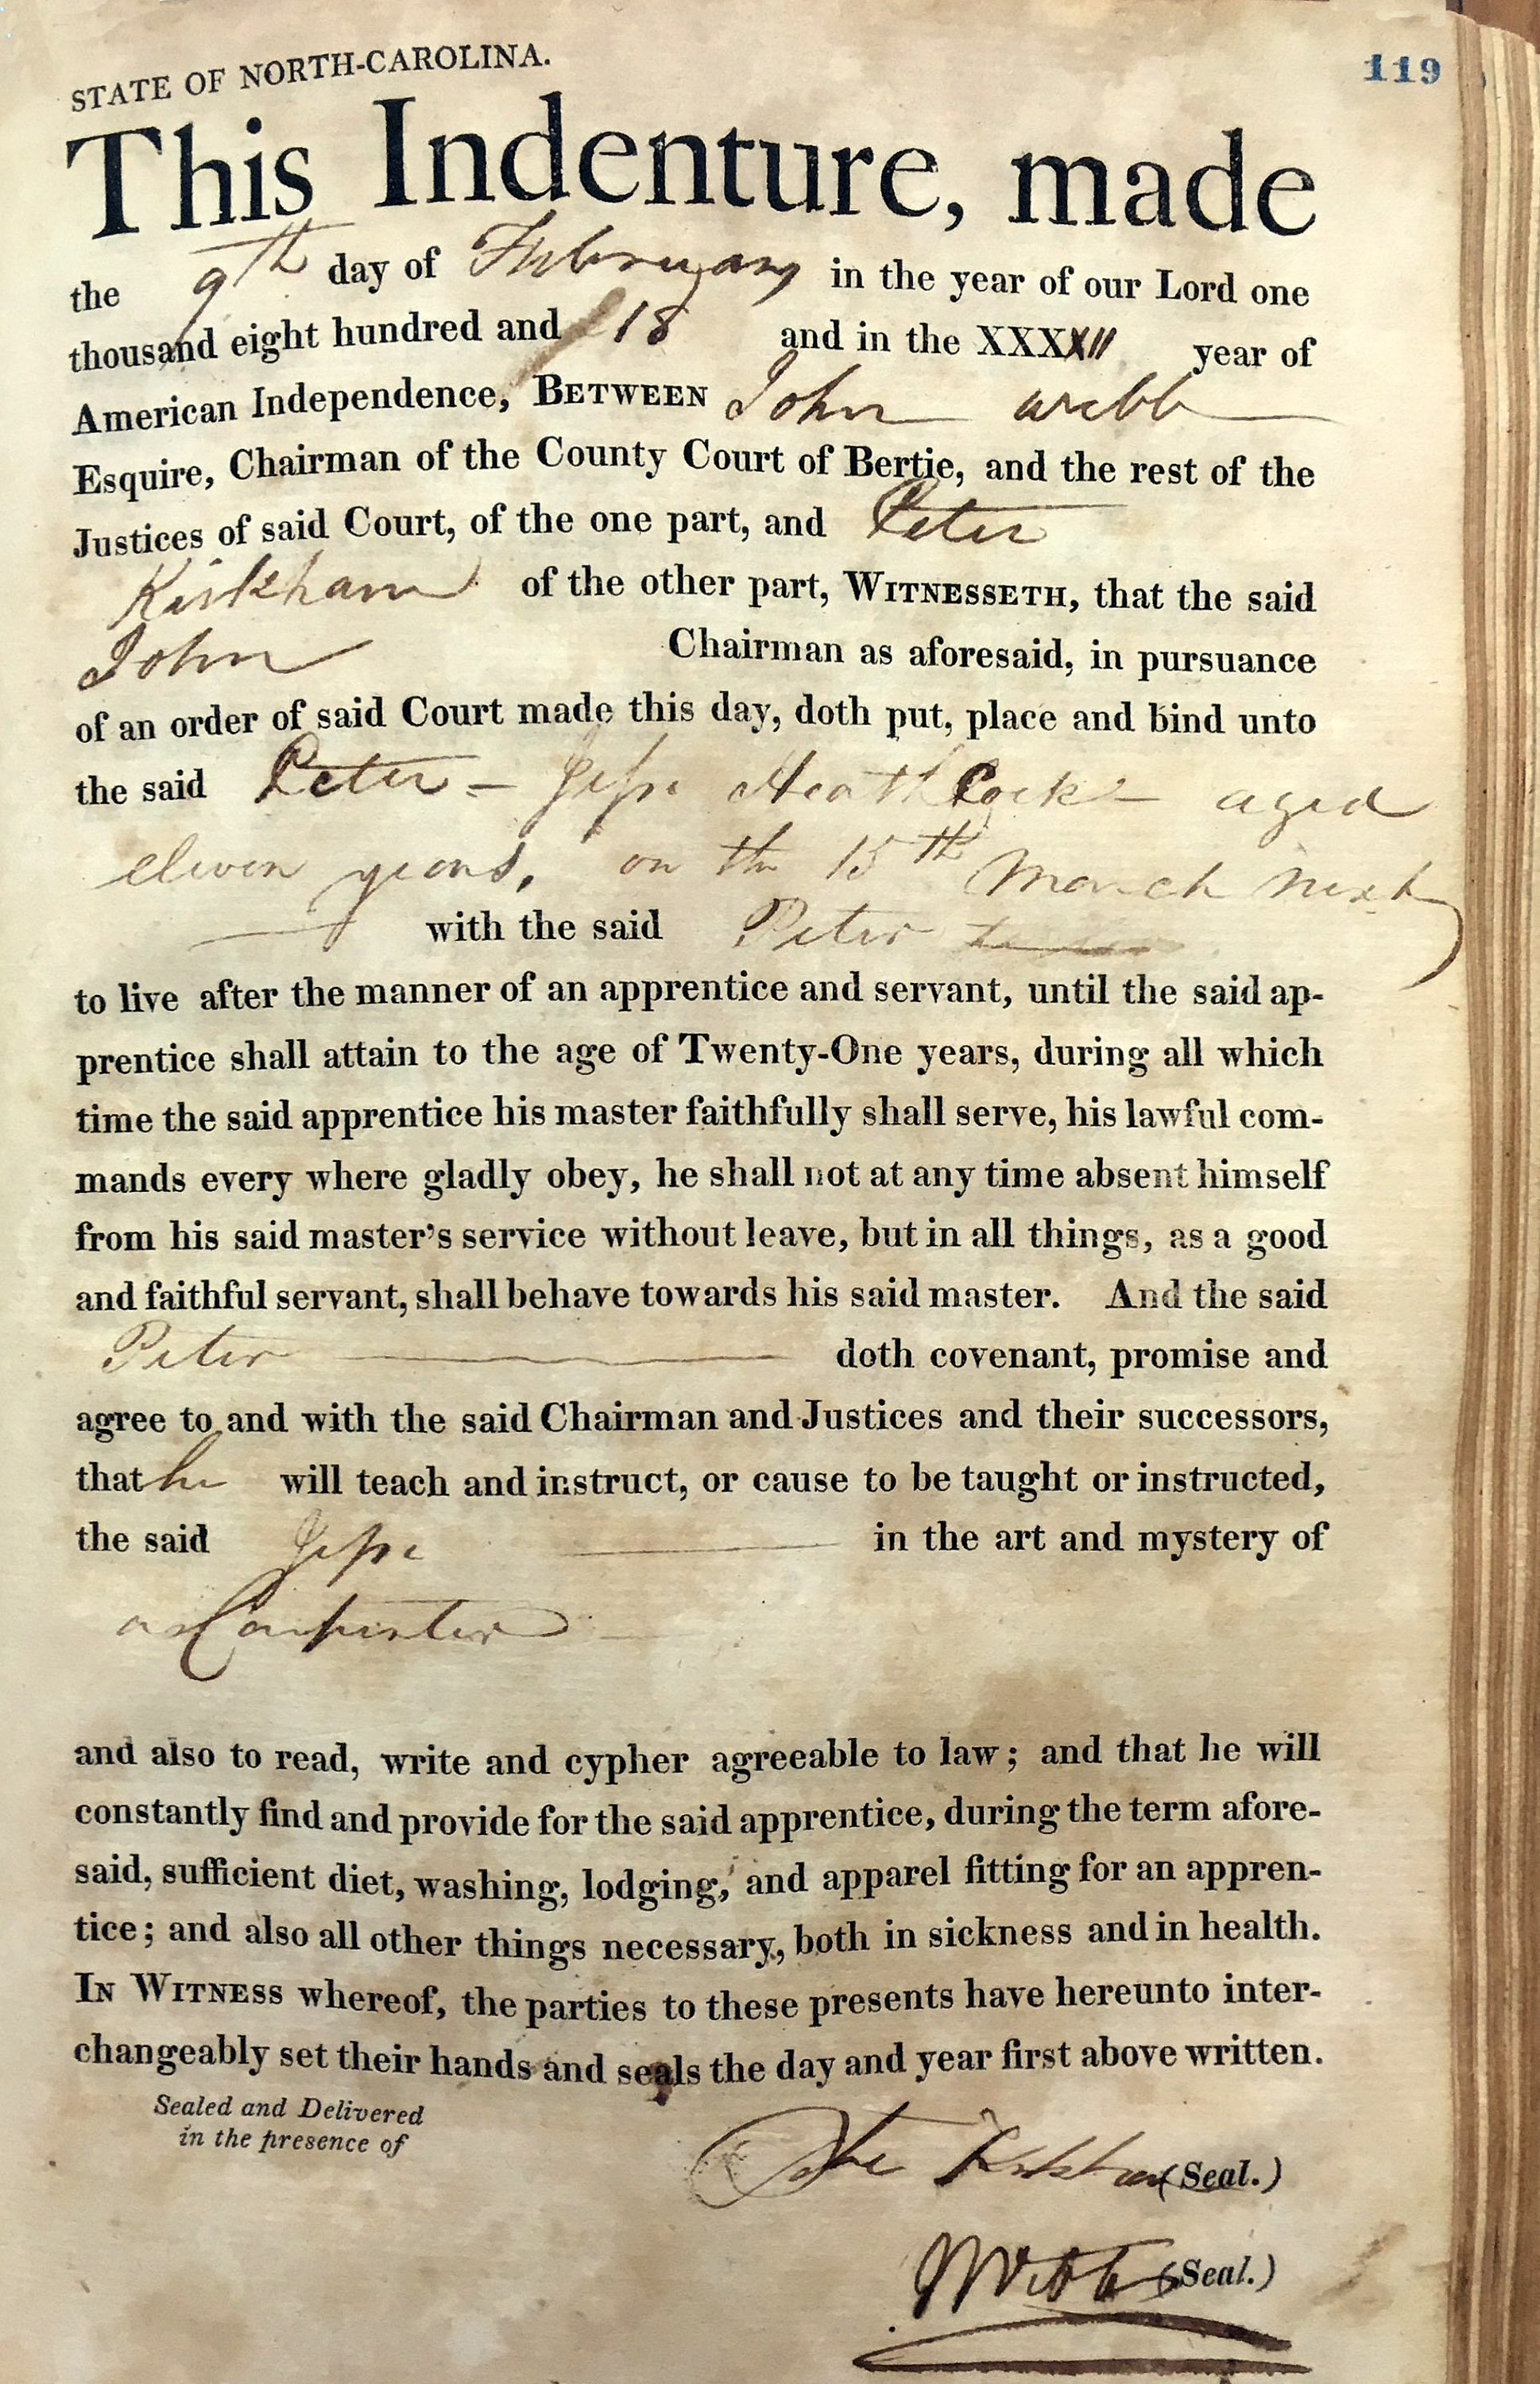 119
STATE OF NORTH-CAROLINA.
This Indenture, made
the 9th day of February in the year of our Lord one
thousand eight hundred and 18 and in the XXXXII year of
American Independence, BETWEEN John Webb
Esquire, Chairman of the County Court of Bertie, and the rest of the
Justices of said Court, of the one part, and Peter
Kirkham of the other part, WITNESSETH, that the said
John Chairman as aforesaid, in pursuance
of an order of said Court made this day, doth put, place and bind unto
the said Peter - Jesse Heathcock aged
eleven years, on the 15th March next
with the said Peter
to live after the manner of an apprentice and servant, until the said ap-
prentice shall attain to the age of Twenty-One years, during all which
time the said apprentice his master faithfully shall serve, his lawful com-
mands every where gladly obey, he shall not at any time absent himself
from his said master's service without leave, but in all things, as a good
and faithful servant, shall behave towards his said master. And the said
Peter doth covenant, promise and
agree to and with the said Chairman and Justices and their successors,
that he will teach and instruct, or cause to be taught or instructed,
the said Jesse in the art and mystery of
a Carpenter
and also to read, write and cypher agreeable to law; and that he will
constantly find and provide for the said apprentice, during the term afore-
said, sufficient diet, washing, lodging, and apparel fitting for an appren-
tice; and also all other things necessary, both in sickness and in health.
IN WITNESS whereof, the parties to these presents have hereunto inter-
changeably set their hands and seals the day and year first above written.
Sealed and Delivered
in the presence of
Kirkham (Seal.)
JWebb (Seal.)